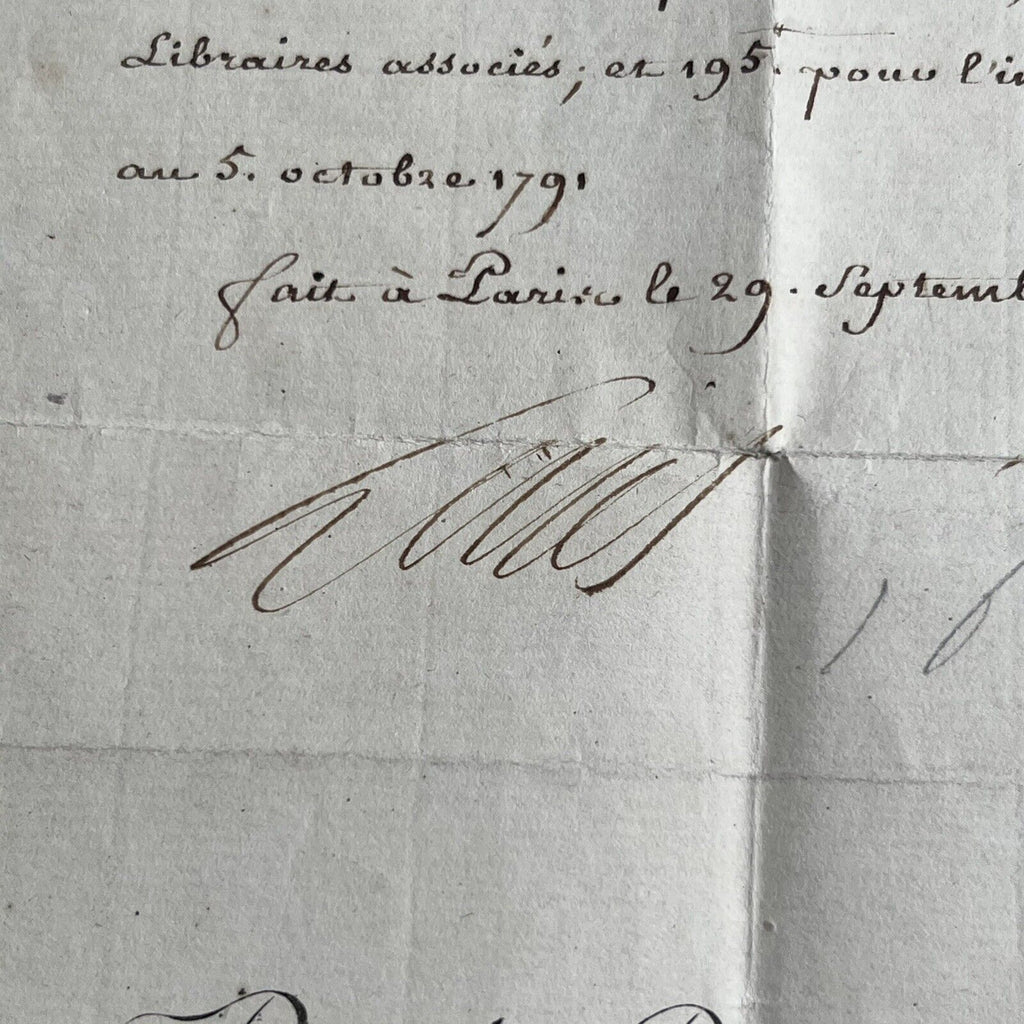 Libraires associés; et 195.# pour l'in
au 5. octobre 1791
fait à Paris le 29. Septemb
Louis